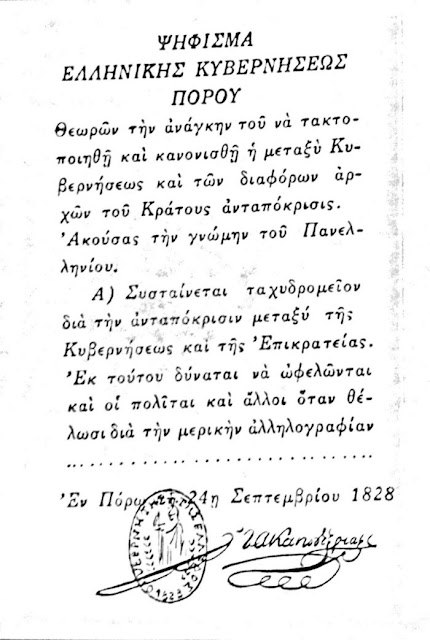 ΨΗΦΙΣΜΑ
ΕΛΛΗΝΙΚΗΣ ΚΥΒΕΡΝΗΣΕΩΣ
ΠΟΡΟΥ
Θεωρῶν τὴν ἀνάγκην τοῦ νὰ τακτο-
ποιηθῇ καὶ κανονισθῇ ἡ μεταξὺ Κυ-
βερνήσεως καὶ τῶν διαφόρων ἀρ-
χῶν τοῦ Κράτους ἀνταπόκρισις.
Ἀκούσας τὴν γνώμην τοῦ Πανελ-
ληνίου.
Α) Συσταίνεται ταχυδρομεῖον
διὰ τὴν ἀνταπόκρισιν μεταξύ τῆς
Κυβερνήσεως καὶ τῆς Ἐπικρατείας.
Ἐκ τούτου δύναται νὰ ὠφελῶνται
καὶ οἱ πολῖται καὶ ἄλλοι ὅταν θέ-
λωσι διὰ τὴν μερικὴν ἀλληλογραφίαν
..............................
Ἐν Πόρῳ τῇ 24ῃ Σεπτεμβρίου 1828
1828